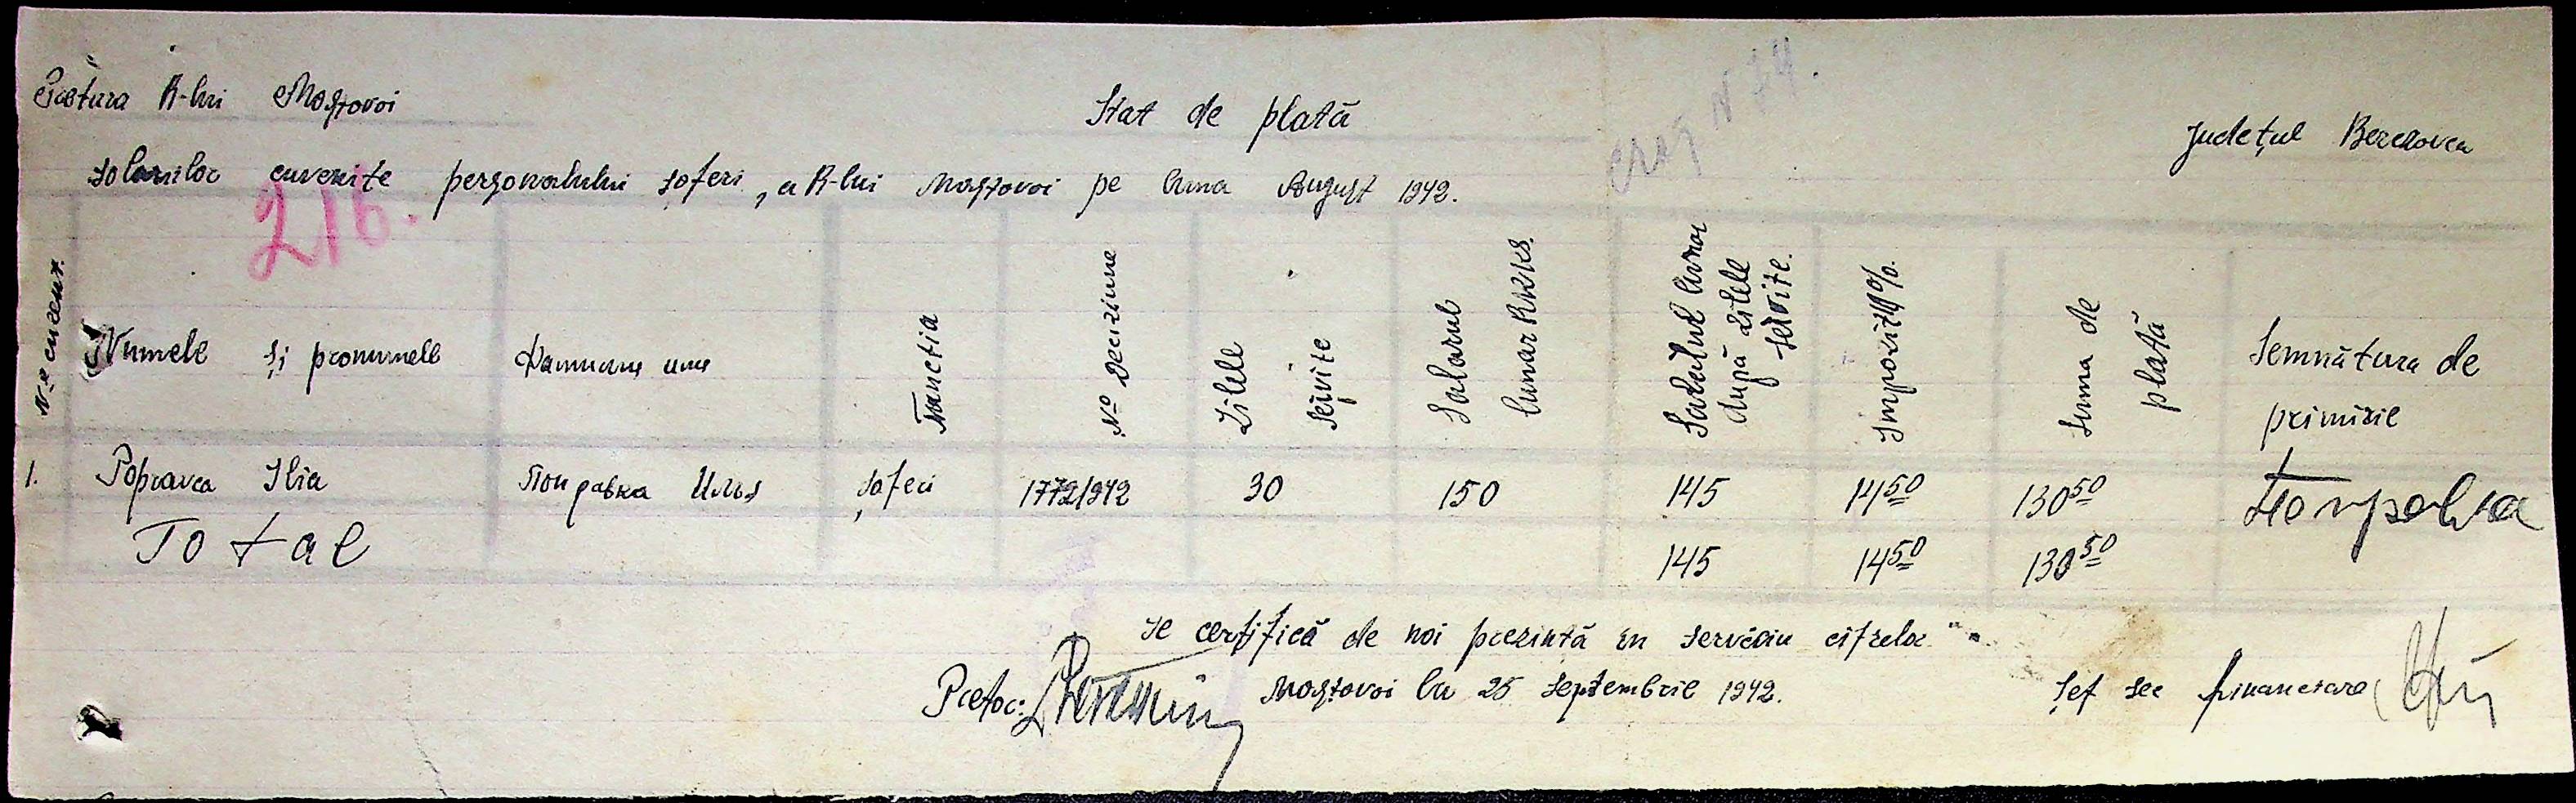 Pretura R-lui Mostovoi
Stat de plată
Județul Berezovca
solariilor cuvenite personalului șoferi, a R-lui Mostovoi pe luna August 1942.
216.
N-r curent.
Numele și pronumele
Фамилия имя
Functia
№ Deciziune
Zilele servite
Salarul lunar RKKS.
Salarul lunar după zilele servite.
Impozit 10%.
Suma de plată
Semnătura de primirie
1. Popravca Ilia Поправка Илья șoferi 1772/942 30 150 145 14 50 130 50
Total 145 14 50 130 50
Se certifică de noi prezintă în serviciu cifrelor
Pretor: Mostovoi la 25 Septembrie 1942. Șef sec financiare